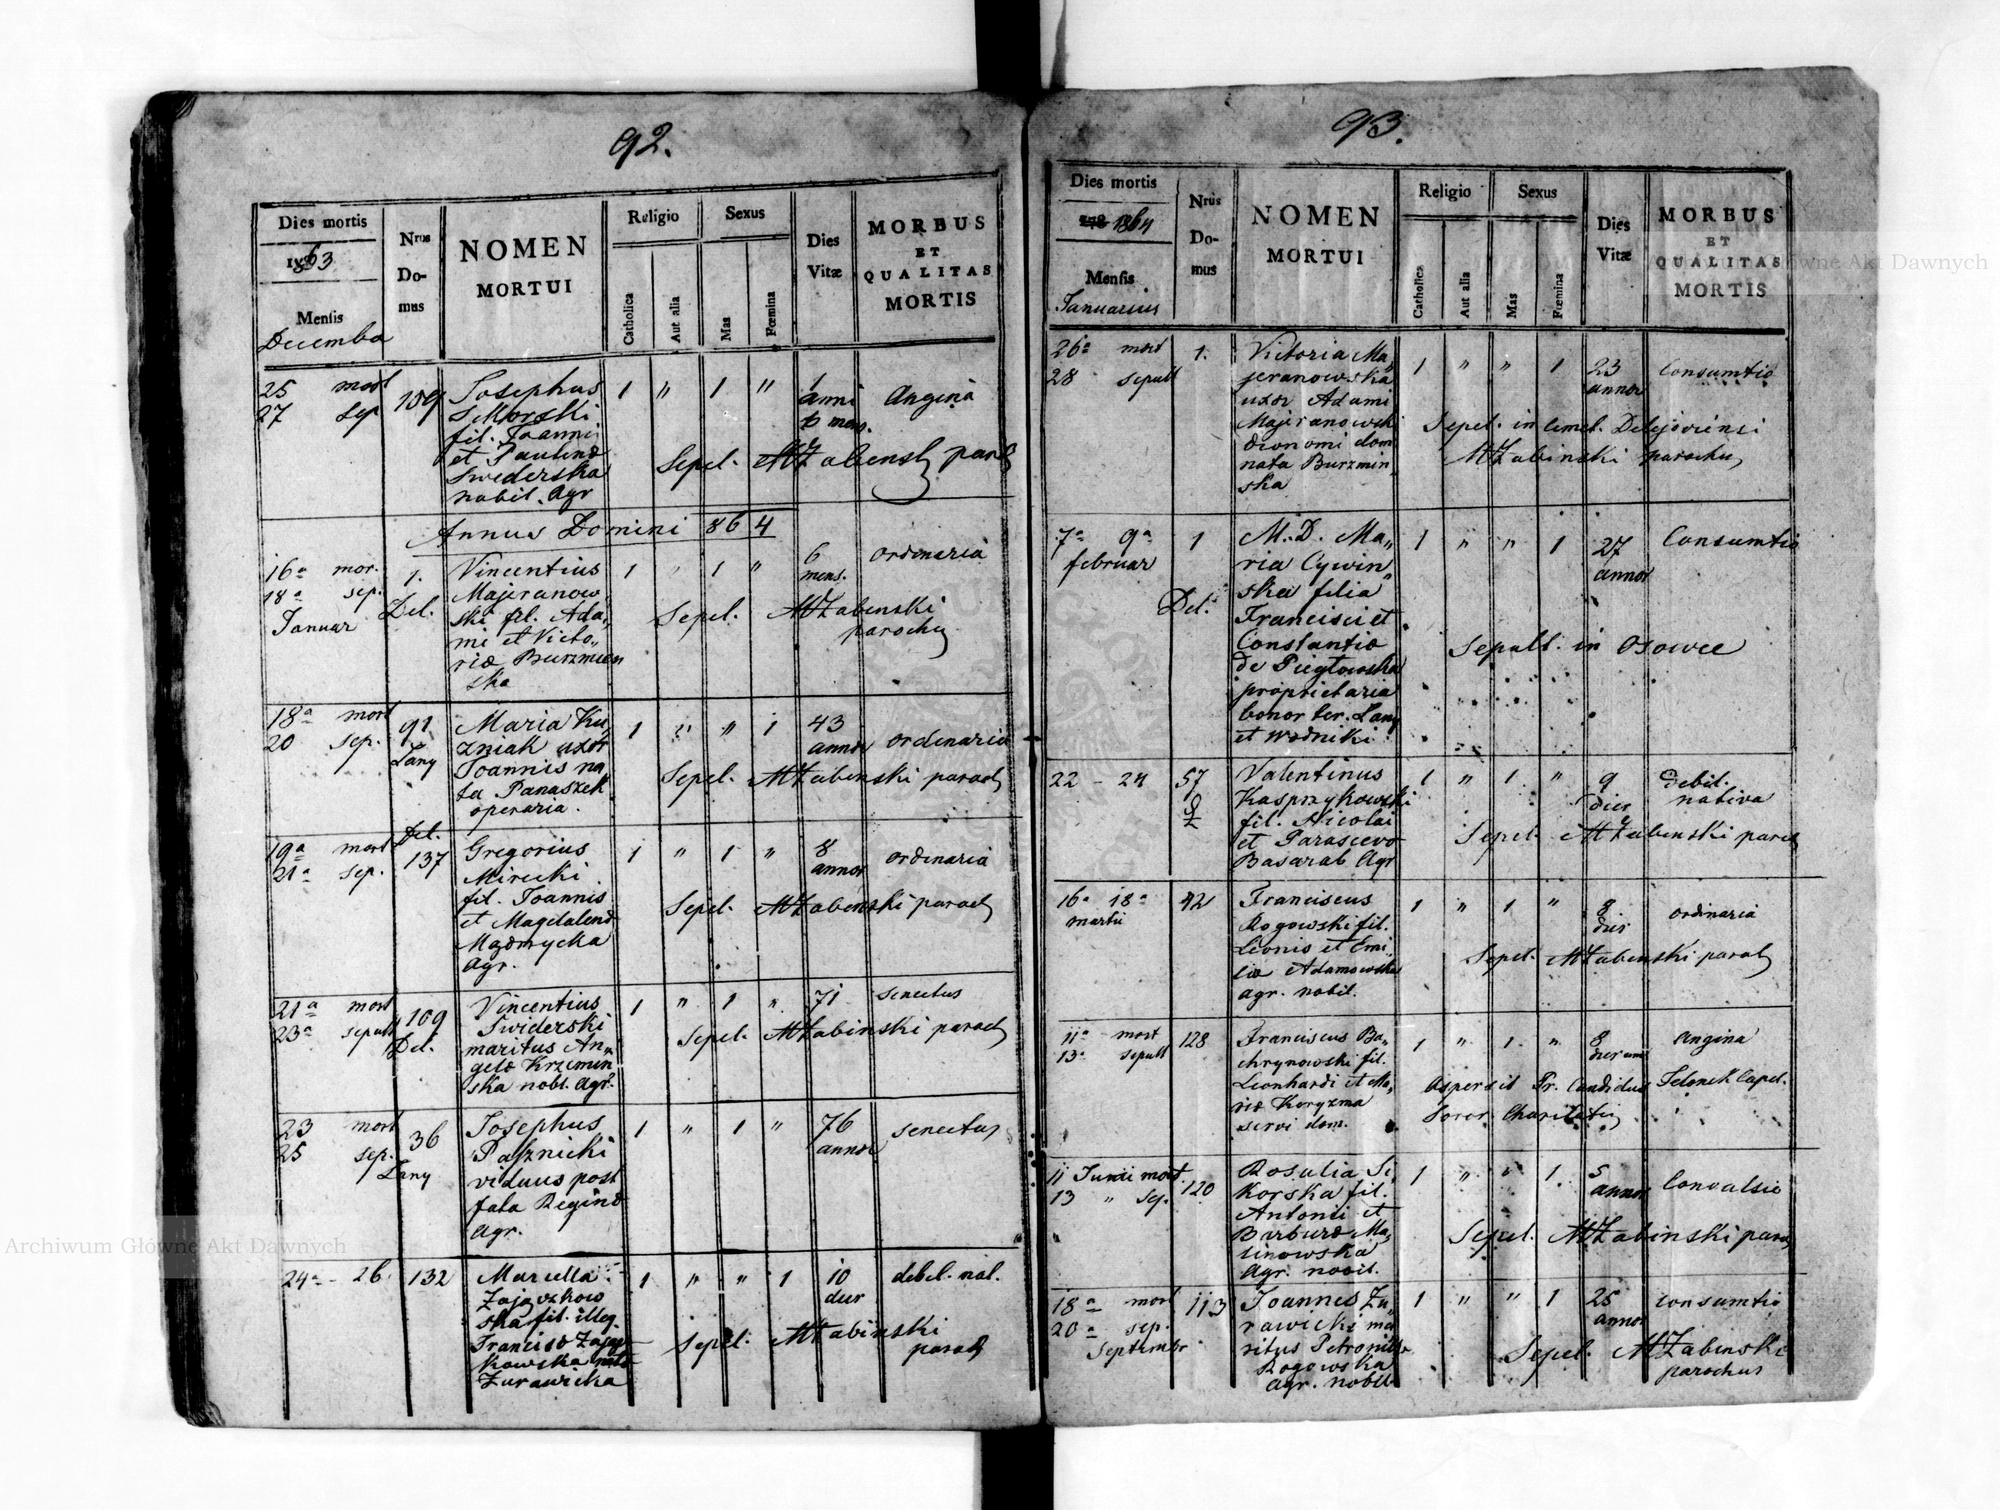 92.
Dies mortis
1863
Mensis
Decembr
Nrus
Do-
mus
NOMEN
MORTUI
Religio
Catholica
Aut alia
Sexus
Mas
Fœmina
Dies
Vitæ
MORBUS
ET
QUALITAS
MORTIS
25 mort
27 sep
109
Josephus
Sikorski
fil. Joannis
et Paulina
Swiderska
nobil. Agr
1 " 1 "
1
anni
6 mens.
Angina
Sepel. MZabinski paroch
Annus Domini 864
16a mor.
18a sep.
Januar
1.
Del.
Vincentius
Majeranow
ski fil. Ada„
mi et Victo„
riæ Burzmin
ska
1 " 1 "
6
mens.
ordinaria
Sepel. MZabinski
parochus
18a mort
20 sep.
91
Lany
Maria Ku
zniak uxor
Joannis na
ta Panaszek
operaria.
1 " " 1
43
annor
ordinaria
Sepel. MZabinski paroch
19a mort
21a sep.
Del.
137
Gregorius
Mirecki
fil. Joannis
et Magdalena
Agr.
1 " 1 "
8
annor
ordinaria
Sepel. MZabinski paroch
21a mort
23a sepult
109
Del.
Vincentius
Swiderski
maritus An„
gela Krzemin
ska nobl. Agr.
1 " 1 "
71
senectus
Sepel. MZabinski paroch
23 mort
25 sep.
36
Lany
Josephus
Pasznicki
viduus post
fata Regina
Agr.
1 " 1 "
76
annor
senectus
24a - 26.
132
Marcella
Zajączkow
ska fil. illeg.
Francisca Zającz
kowska nata
Zurawicka
1 " " 1
10
dier
debil. nat.
Sepel. MZabinski
paroch
93.
Dies mortis
1864
Mensis
Januarius
Nrus
Do-
mus
NOMEN
MORTUI
Religio
Catholica
Aut alia
Sexus
Mas
Fœmina
Dies
Vitæ
MORBUS
ET
QUALITAS
MORTIS
26a mort
28 sepult
1.
Victoria Ma„
jeranowska
uxor Adami
Majeranowski
œconomi dom
nata Burzmin„
ska
1 " " 1
23
annor
Consumtio
Sepel. in cemet. Delejoviensi
MZabinski parochus
7a 9a
februar
1
Del.
M. D. Ma„
ria Cywin„
ska filia
Francisci et
Constantia
de Pieglowska
proprietaria
bonor ter. Lany
et Wodniki
1 " " 1
27
annor
Consumtio
Sepult. in Osowce
22 - 24
57
Valentinus
Kasprzykowski
fil. Nicolai
et Parasceva
Basarab Agr
1 " 1 "
9
dier
debil.
nativa
Sepel. MZabinski paroch
16a 18a
martii
42
Franciscus
Rogowski fil.
Leonis et Emi„
lia Adamowska
agr. nobil.
1 " 1 "
8
dier
ordinaria
Sepel. MZabinski paroch
11a mort
13a sepult
128
Franciscus Ba„
chrynowski fil.
Leonhardi et Ma„
ria Koryzma
servi dom.
1 " 1 "
8
dierum
Angina
Aspersit Pr. Candidus Telenek Capel.
Soror. Charitatis
11 Junii mort.
13 " sep.
120
Rosalia Si„
korska fil.
Antonii et
Barbara Ma„
linowska
Agr. nobil.
1 " " 1
5
annor
Convulsio
Sepel. MZabinski paroch
18a mort
20a sep.
Septembr
113
Joannes Zu„
rawicki ma
ritus Petronilla
Rogowska
agr. nobil
1 " " 1
25
annor
consumtio
Sepel. MZabinski
parochus
Archiwum Główne Akt Dawnych